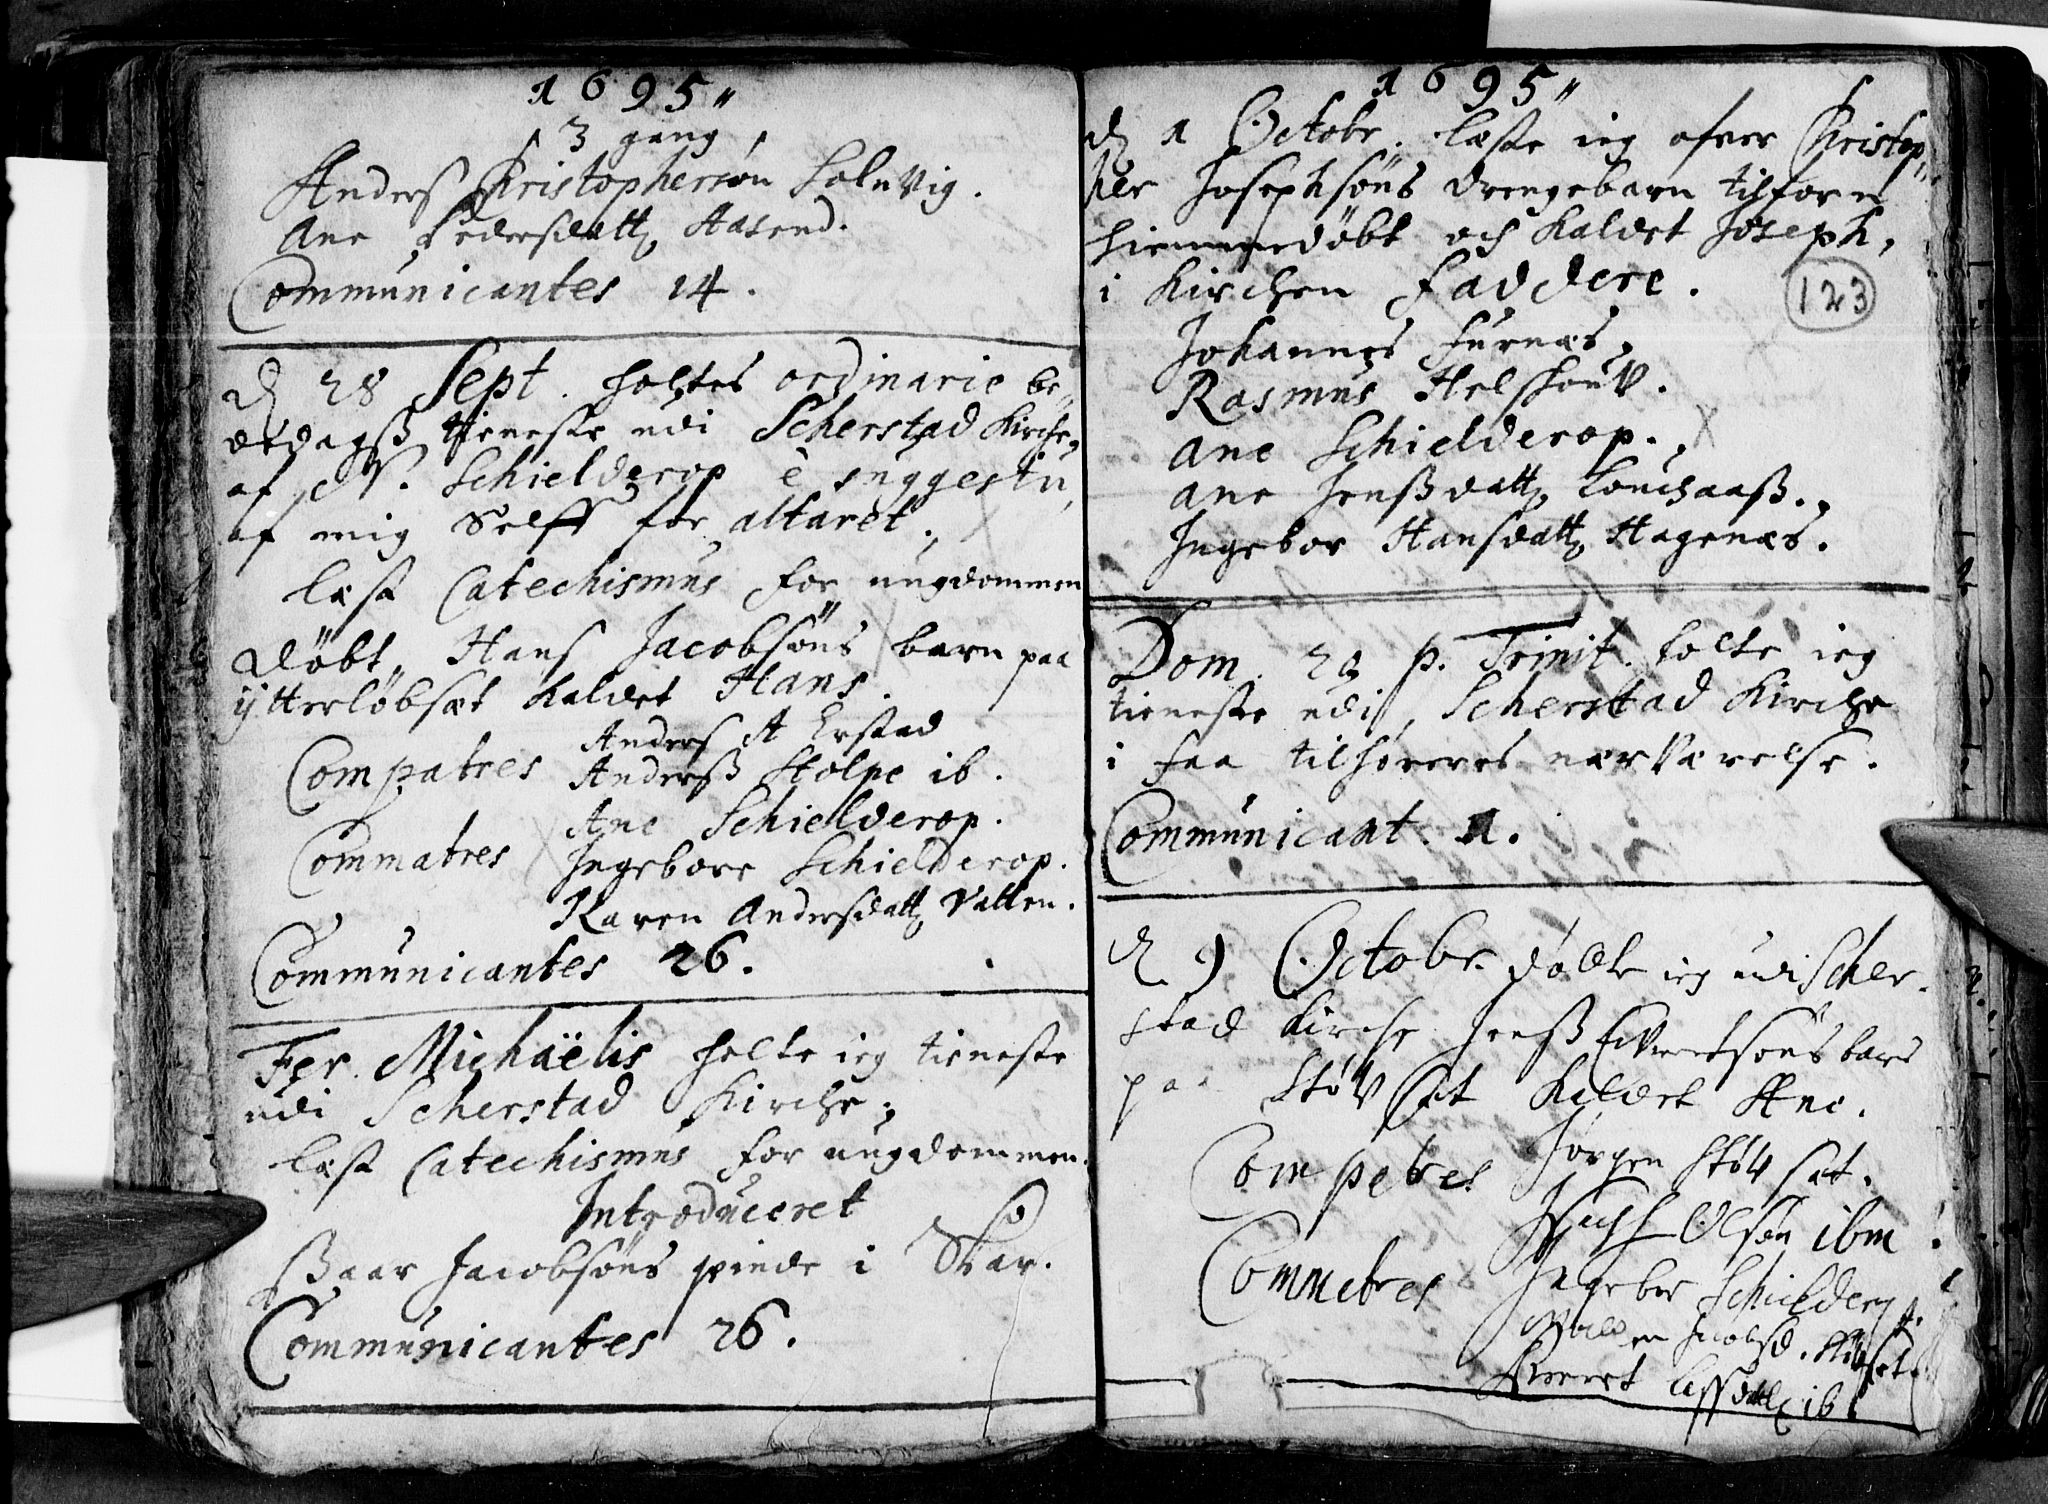 1695"
3 gang,
Anders Kristophersøn Solnvig.
Ane Pedersdatt Aasend.
Communicantes 14.
d 28 Sept. holtes ordinarie be„
dedagß tieneste udi Scherstad Kirche,
af N. Schielderop è suggestu,
af mig Selff for altaret.
læst Catechismus for ungdommen
døbt, Hans Jacobsøns barn paa
ÿtterløbsæt kaldet Hans.
Anders A Erstad
Compatres Anderß Stolpe ib.
Ane Schielderop.
Commatres Ingeborr Schielderop.
Karen Andersdatt Vatten.
Communicantes 26.
Fer. Michaëlis holte ieg tieneste
udi Scherstad Kirche,
læst Catechismus for ungdommen.
Introduceret
Jacobsøns qvinde i Skar.
Communicantes 26.
1695"
d 1 Octobr. læste ieg ofver Kristop„
her Josephsøns drengebarn tilforn
hiemmedöbt och kaldet Joseph,
i Kirchen Faddere.
123
Johannes Furnæs,
Rasmus
Ane Schielderop.
Ane Jenßdatt
Ingebor Hansdatt Hagenæs.
Dom. 20 p. Trinit. holte ieg
tieneste udi Scherstad Kirche
i faa tilhøreres nærværelse.
Communicant. 1.
d 9 Octobr. døbte ieg udi Scher„
stad Kirche Jenß Evertsøns barn
paa Støvset kaldet Ane.
Compatres Jørgen Støvset.
Olsøn ibm
Commatres Ingebor Schielderop.
Maren Jacobsd. Støvset.
ib